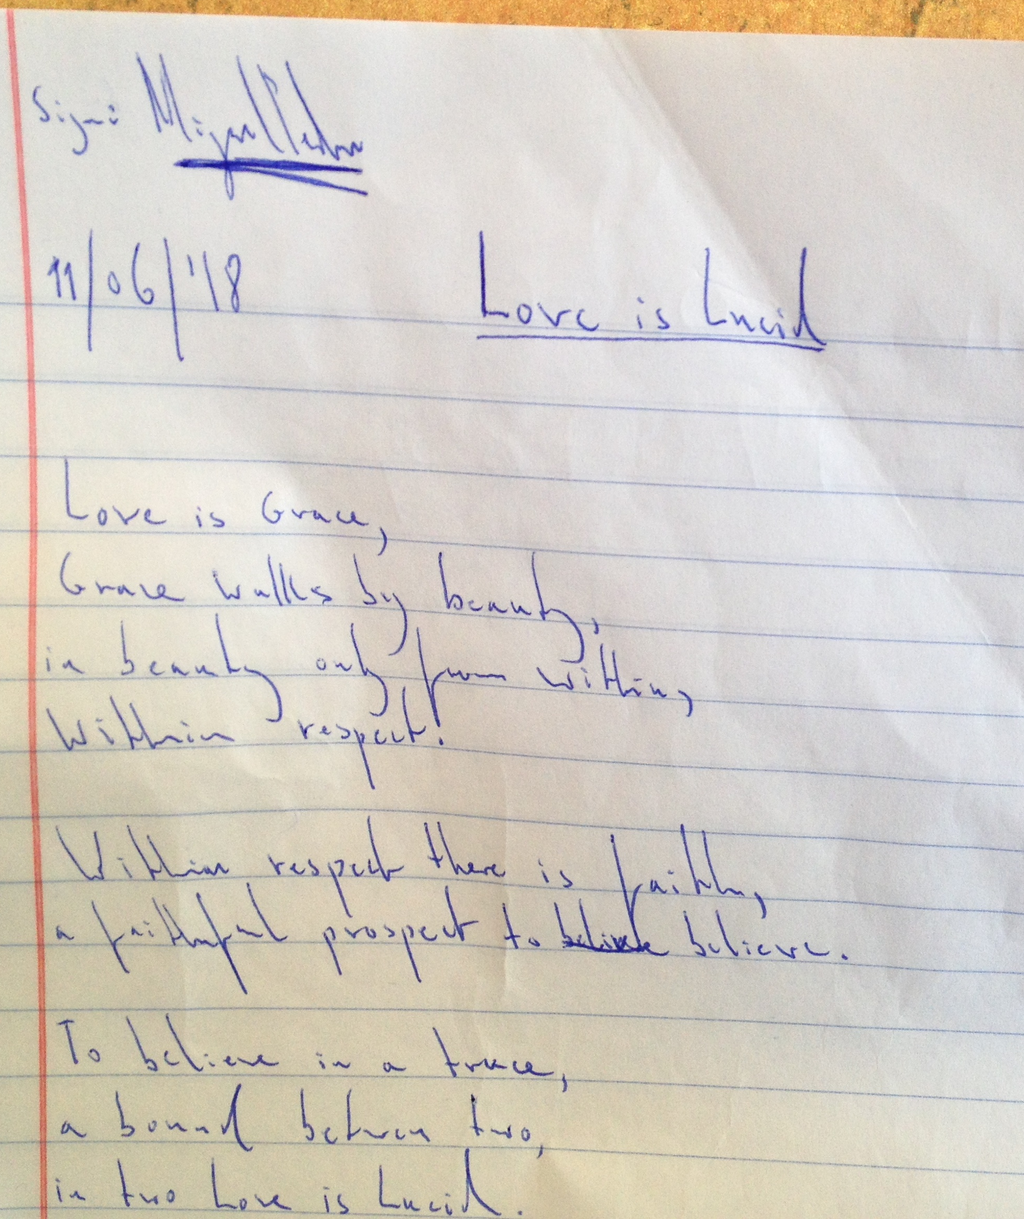 Sign:
11/06/'18
Love is Lucid
Love is Grace,
Grace walks by beauty,
in beauty only from within,
Within respect.
Within respect there is faith,
a faithful prospect to believe.
To believe in a truce,
a bound between two,
in two Love is Lucid.